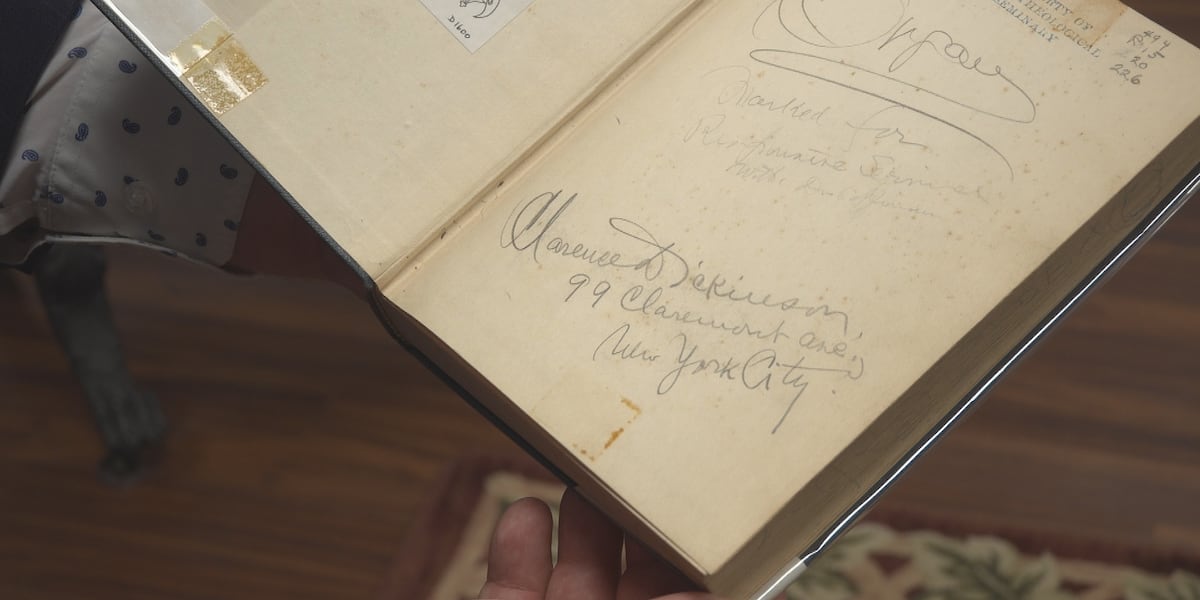 D1600
Organ
RTY OF
THEOLOGICAL
SEMINARY
#94
R15
20
226
Marked for
Responsive Service
with
Clarence Dickinson,
99 Claremont ave.,
New York City.